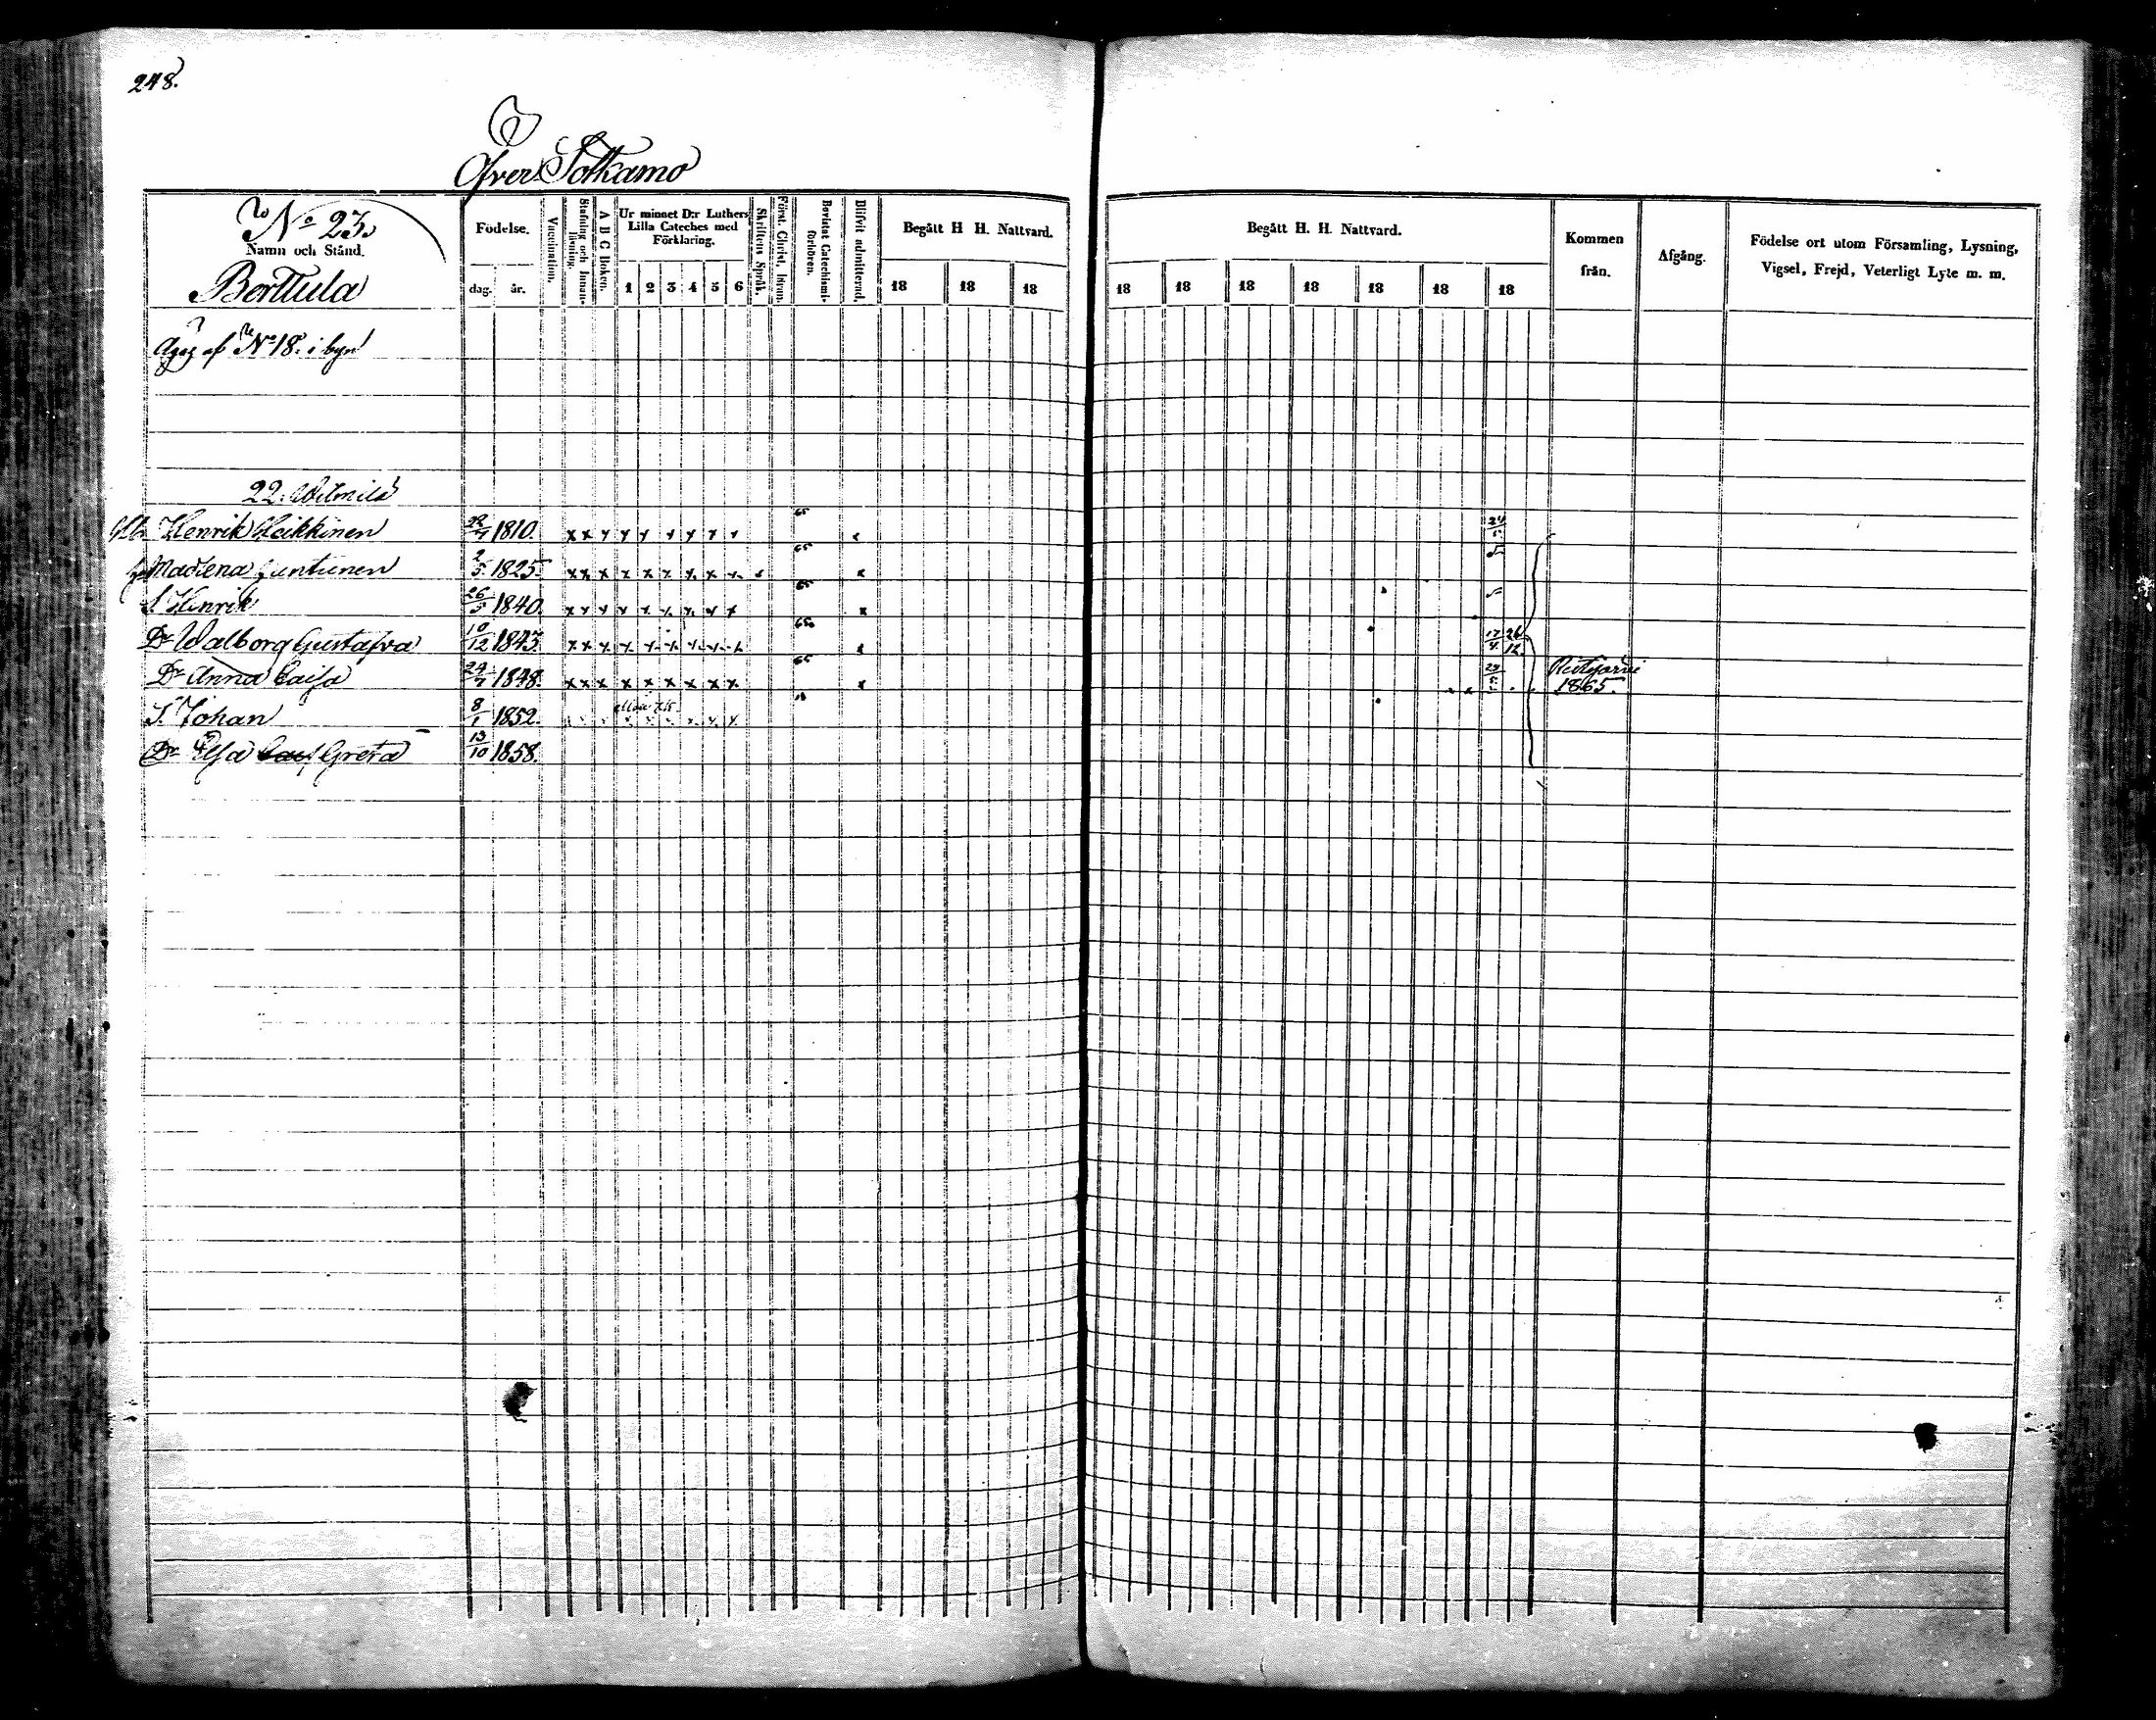 248.
Öfver Sotkamo
No 23.
Namn och Stånd.
Berttula
Födelse.
dag. år.
Vaccination.
Stafning och Innanläsning.
A B C Boken.
Ur minnet D:r Luthers Lilla Cateches med Förklaring.
1 2 3 4 5 6
Skriftens Språk.
Först. Christ. läran.
Bevistat Catechismi-förhören.
Blifvit admitterad.
Begått H H. Nattvard.
18 18 18
Begått H. H. Nattvard.
18 18 18 18 18 18 18
Kommen från.
Afgång.
Födelse ort utom Församling, Lysning, Vigsel, Frejd, Veterligt Lyte m. m.
af No 18. i byn
22.
Henrik Heikkinen 1810. x x x x x x x x x 65 x 24/5
Madlena Juntunen 2/5 1825. x x x x x x x x x 65 x
S. Henrik 26/5 1840. x x x x x x x x x 65 x
Dr Walborg Gustafva 10/12 1843. x x x x x x x x x 65 x 17/4 26/12
Dr Anna Caisa 24/7 1848. x x x x x x x x x 65 x 1865.
S. Johan 8/1 1852. x x x
Dr Elsa Greta 13/10 1858.